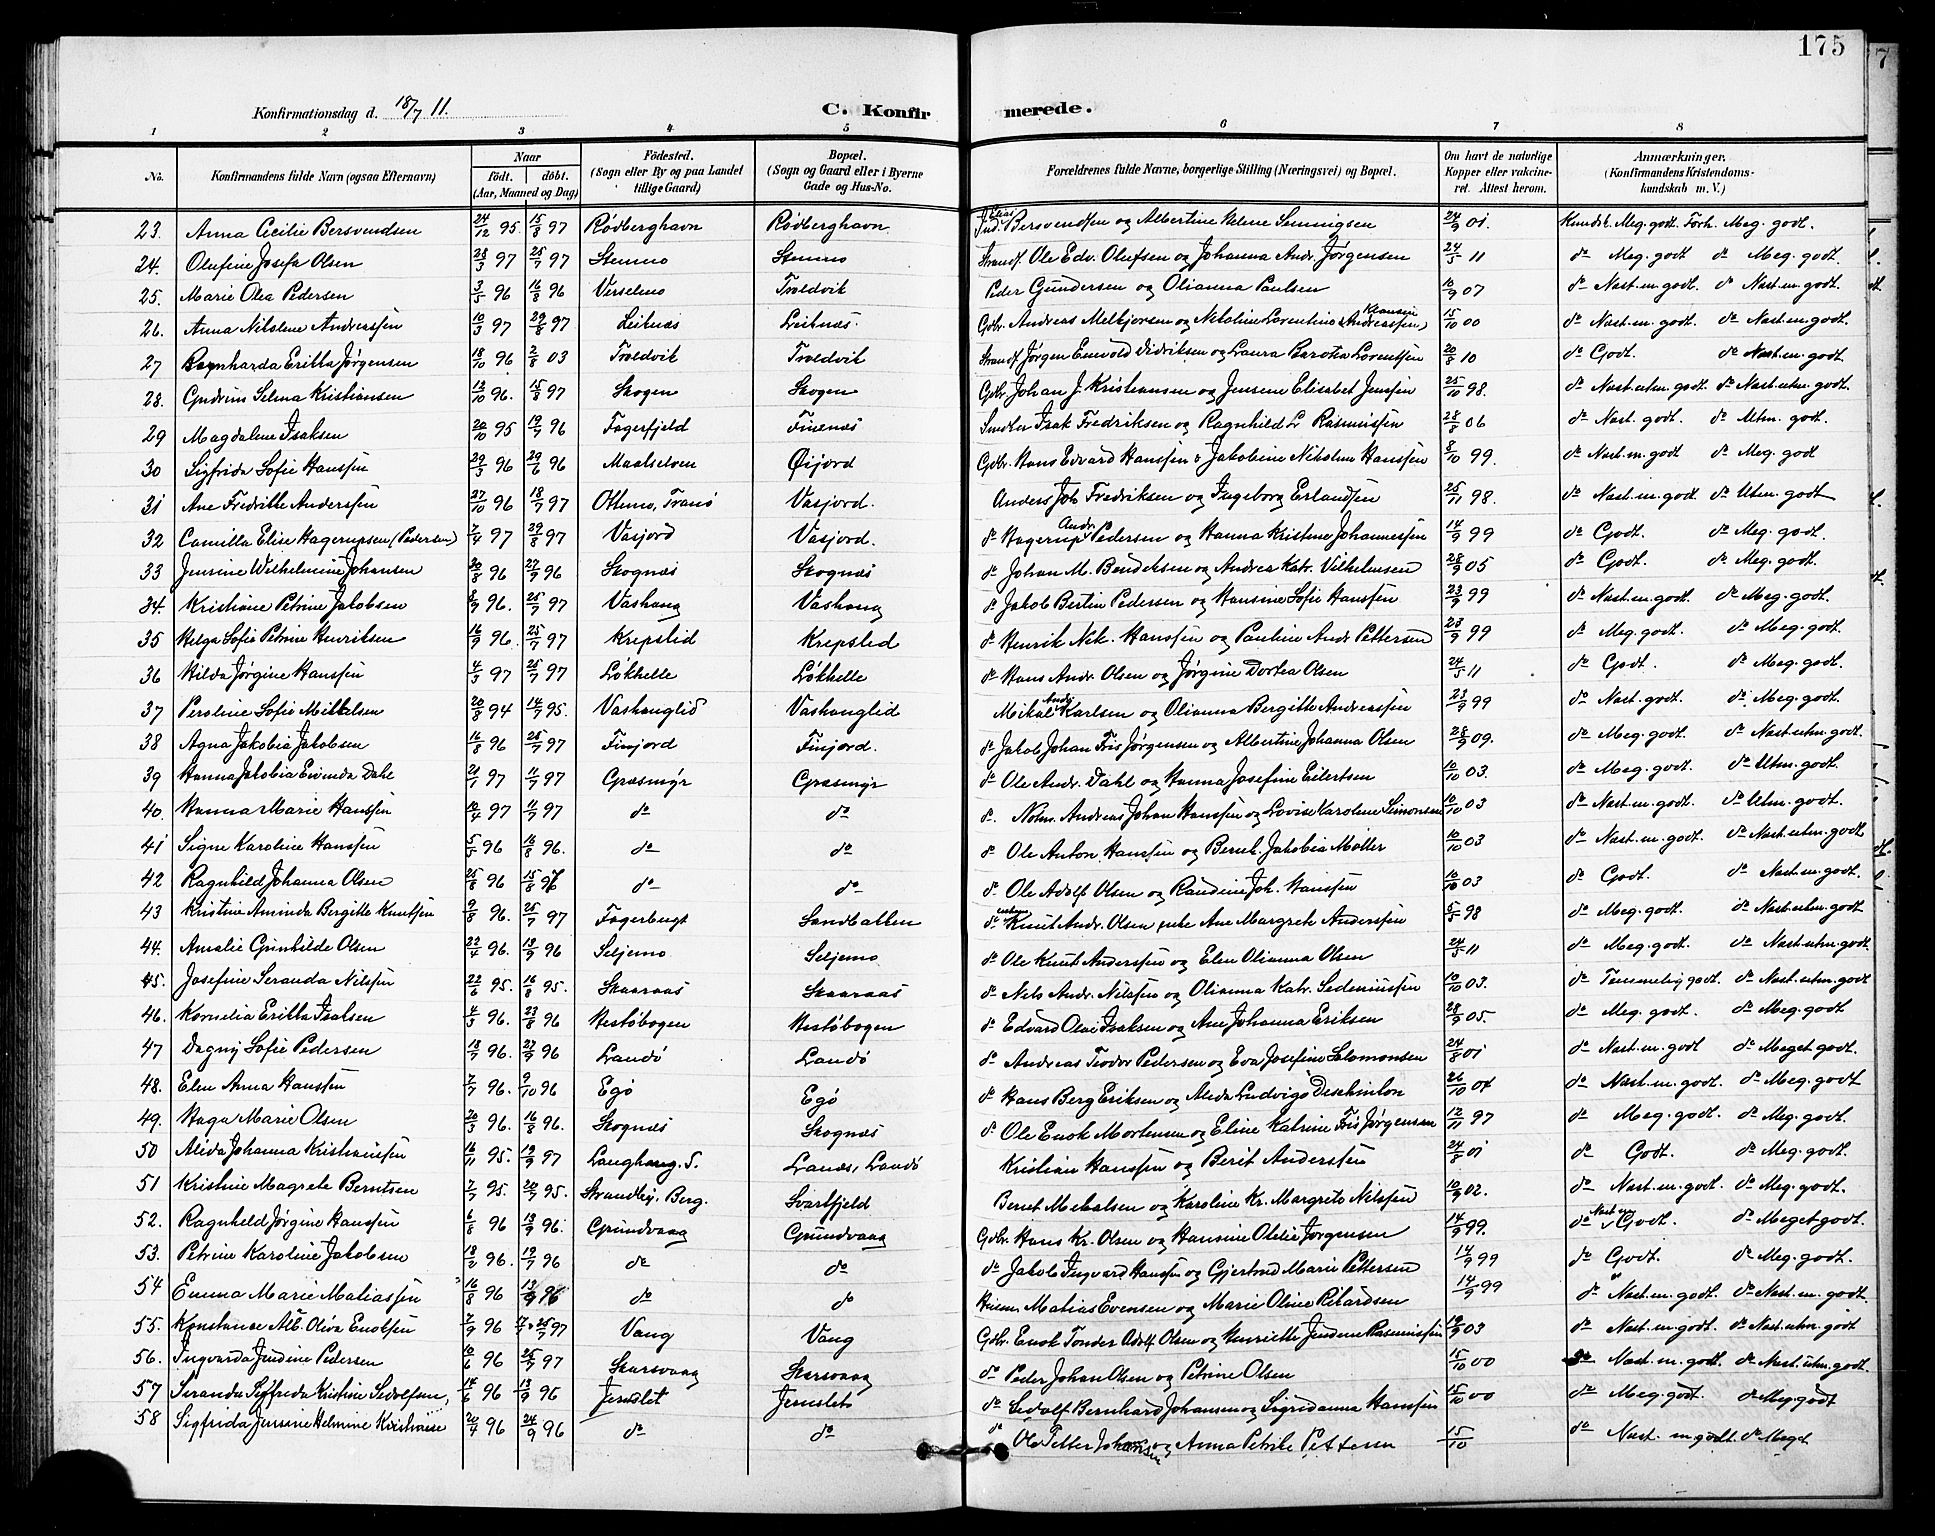 175
Konfirmationsdag d. 18/7 11.
C. Konfirmerede.
1 2 3 4 5 6 7 8
No. Konfirmandens fulde Navn (ogsaa Efternavn) Naar født. døbt. (Aar, Maaned og Dag) Fødested. (Sogn eller By og paa Landet tillige Gaard) Bopæl. (Sogn og Gaard eller i Byerne Gade og Hus-No. Forældrenes fulde Navne, borgerlige Stilling (Næringsvei) og Bopæl. Om havt de naturlige Kopper eller vakcineret. Attest herom. Anmærkninger. (Konfirmandens Kristendomskundskab m. V.)
23. Anna Cecilie Bersvendsen 24/12 95. 15/8 97 Rødberghavn Rødberghavn Ind. Elias Bersvendsen og Albertine Helene Semingsen 24/9 01. Kundsk. Meg. godt. Forh. Meg. godt.
24. Olufine Josefa Olsen 28/3 97 25/7 97 Stenmo Stenmo Strandf. Ole Edv. Olufsen og Johanna Andr. Jørgensen 24/5 11 do Meg. godt do Meg. godt.
25. Marie Olea Pedersen 3/5 96 16/8 96 Verselmo Troldvik Peder Gundersen og Olianna Paulsen 10/9 07 do Nast. m. godt. do Nast. m. godt.
26. Anna Nikoline Andreassen 10/3 97 29/8 97 Leiknæs Leiknæs. Gbr. Andreas Melkjorsen og Nikoline Lorentine Klausen (Andreassen) 15/10 00 do Nast. m. godt. do Nast. m. godt.
27 Ragnharda Erikka Jørgensen 18/10 96 2/8 03 Troldvik Troldvik Strandf. Jørgen Enevold Didriksen og Laura Barotia Lorentsen 20/8 10 do Godt. do Nast. m. godt.
28. Gudrun Selma Kristiansen 12/10 96. 15/8 97 Skogen Skogen Gbr. Johan J. Kristiansen og Jensine Elisabet Jensen 25/10 98. do Nast. utm. godt do Nast. utm. godt.
29 Magdalene Isaksen 20/10 95 19/7 96 Fagerfjeld Finnæs Inderst Isak Fredriksen og Ragnhild L Rasmussen 28/8 06 do Nast. godt. do Utm. godt.
30 Sigfrida Sofie Hanssen 29/3 96 29/6 96 Maalselven Øijord Gbr. Hans Edvard Hanssen & Jakobine Nikoline Hanssen 8/10 99. do Nast. m. godt do Meg. godt
31 Ane Fredrikke Anderssen 27/10 96 18/7 97 Ottemo, Tranø Vasjord. Anders Joh. Fredriksen og Ingeborg Erlandsen 25/11 98. do Nast. m. godt do Utm. godt
32 Camilla Elise Hagerupsen (Pedersen) 7/4 97 29/8 97 Vasjord Vasjord. do Hagerup Andr. Pedersen og Hanna Kristine Johannessen 14/9 99 do Godt. do Meg. godt.
33 Jensine Wilhelmine Johansen 20/8 96 27/9 96 Skognæs Skognæs do Johan M. Bendiksen og Andrea Katr. Vilhelmsen 28/9 05 do Godt. do Meg. godt.
34. Kristiane Petrine Jakobsen 8/9 96. 25/7 97 Vashaug Vashaug do Jakob Bertin Pedersen og Hansine Sofie Hanssen 23/9 99 do Nast. m. godt. do Meg. godt.
35 Helga Sofie Petrine Henriksen 16/9 96. 25/7 97 Krepslid Krepslid do Henrik Nik. Hanssen og Pauline Andr. Pettersen 23/9 99 do Meg. godt. do Meg. godt.
36 Hilda Jørgine Hanssen 4/5 97 25/7 97 Løkhelle Løkhelle do Hans Andr. Olsen og Jørgine Dortea Olsen 24/5 11 do Godt. do Meg. godt.
37 Peroline Sofie Mikkelsen 20/8 94 14/7 95. Vashauglid Vashauglid Mikal Andr. Karlsen og Olianna Bergitte Andreassen 23/9 99 do Nast. godt. do Meg. godt.
38 Agna Jakobia Jakobsen 16/8 96 25/7 97 Finjord Finjord. do Jakob Johan Friis Jørgensen og Albertine Johanna Olsen 28/9 09. do Meg. godt. do Nast. utm. godt.
39 Hanna Jakobia Evinda Dahl 21/1 97 11/7 97 Græsmyr Græsmyr do Ole Andr. Dahl og Hanna Josefine Eilertsen 10/10 03. do Meg. godt. do Utm. godt.
40. Hanna Marie Hanssen 10/4 97 11/7 97 do do do. Notm. Andreas Johan Hanssen og Lovise Karoline Simonsen 10/10 03 do Nast. m. godt. do Utm. godt.
41 Signe Karoline Hanssen 5/5 96 16/8 96. do do do Ole Anton Hanssen og Bernt. Jakobia Møller 10/10 03 do Nast. m. godt. do Nast. utm. godt
42 Ragnhild Johanna Olsen 25/8 96 15/8 97 do do do. Ole Adolf Olsen og Randine Joh. Hanssen 10/10 03 do Godt. do Nast. m. godt.
43 Kristine Aminda Bergitte Knutsen 9/8 96. 25/7 97 Fagerbugt Sandbakken do Knut Andr. Olsen enke Ane Margrete Anderssen 5/5 98 do Meg. godt. do Nast. utm. godt
44. Amalie Gunhilde Olsen 22/4 96. 13/9 96 Seljemo Seljemo do Ole Knut Anderssen og Elen Olianna Olsen 24/5 11 do Meg. godt. do Nast. utm. godt.
45. Josefine Seranda Nilssen 22/6 95. 16/8 95. Skaaraas Skaaraas do Nels Andr. Nilssen og Olianna Katr. Sedeniussen 10/10 03. do Temmelig godt. do Nast. utm. godt
46. Kornelia Erikka Isaksen 4/3 96. 23/8 96 Næstøbogen Næstøbogen do Edvard Olai Isaksen og Ane Johanna Eriksen 28/9 05. do Meg. godt. do Meg. godt
47 Dagny Sofie Pedersen 18/7 96. 27/9 96 Landø Landø do Andreas Teodor Pedersen og Eva Josefine Salomonsen 24/8 01 do Nast. m. godt do Meget godt.
48. Elen Anna Hanssen 7/7 96. 9/10 96 Egø Egø do Hans Berg Eriksen og Alida Ludvigø Deschinlon 26/10 04 do Nast. m. godt. do Meg. godt
49. Haga Marie Olsen 20/3 96. 16/8 96. Skognæs Skognæs do. Ole Enok Mortensen og Eline Katrine Friis Jørgensen 12/11 97 do Meg. godt. do Meg. godt.
50 Alida Johanna Kristiansen 16/11 95. 19/9 97 Langhaug. S. Lanæs, Landø Kristian Hanssen og Berit Anderssen 24/8 01 do Godt. do Meg. godt.
51 Kristine Magrete Berntsen 7/7 95. 20/7 95. Strandby. Berg. Svartfjeld Bernt Mikalsen og Karoline Kr. Margrete Nilssen 10/9 02. do Nast. m. godt. do Meg. godt.
52. Ragnhild Jørgine Hanssen 6/8 96 13/9 96. Grundvaag Grundvaag Gbr. Hans Kr. Olsen og Hansine Otelie Jørgensen 14/9 99. do Nast m. Godt. do Meget godt.
53. Petrine Karoline Jakobsen 18/2 96. 19/7 96 do do do Jakob Ingvard Hanssen og Gjertrud Marie Pettersen 14/9 99 do Godt. do Meg. godt.
54 Emma Marie Matiassen 16/8 96 13/9 96 do do Matias Evensen og Marie Oline Rikardsen 14/9 99 do Nast. m. godt. do Nast. m. godt.
55. Konstanse Alb. Oliva Enoksen 7/9 96 25/7 97 Vang Vang Gbr. Enok Tonder Adolf Olsen og Henriette Jendine Rasmussen 19/9 03 do Nast. m. godt. do Nast. utm. godt
56. Ingvarda Jendine Pedersen 10/6 96 25/7 97 Skarsvaag Skarsvaag do Peder Johan Olsen og Petrine Olsen 15/10 00 do Nast. m. godt. do Nast. utm. godt.
57 Seranda Sigfreda Kristine Sedolfsen, 14/6 96 13/9 96 Jenslet Jenslet do Sedolf Bernhard Johansen og Sigridanna Hanssen 15/10 00 do Meg. godt. do Meg. godt
58 Sigfrida Jensine Helmine 20/4 96 24/9 96 do do do Ole Petter Johansen og Anna Petrike Pettersen 15/10 do Nast. m. godt. do Meget